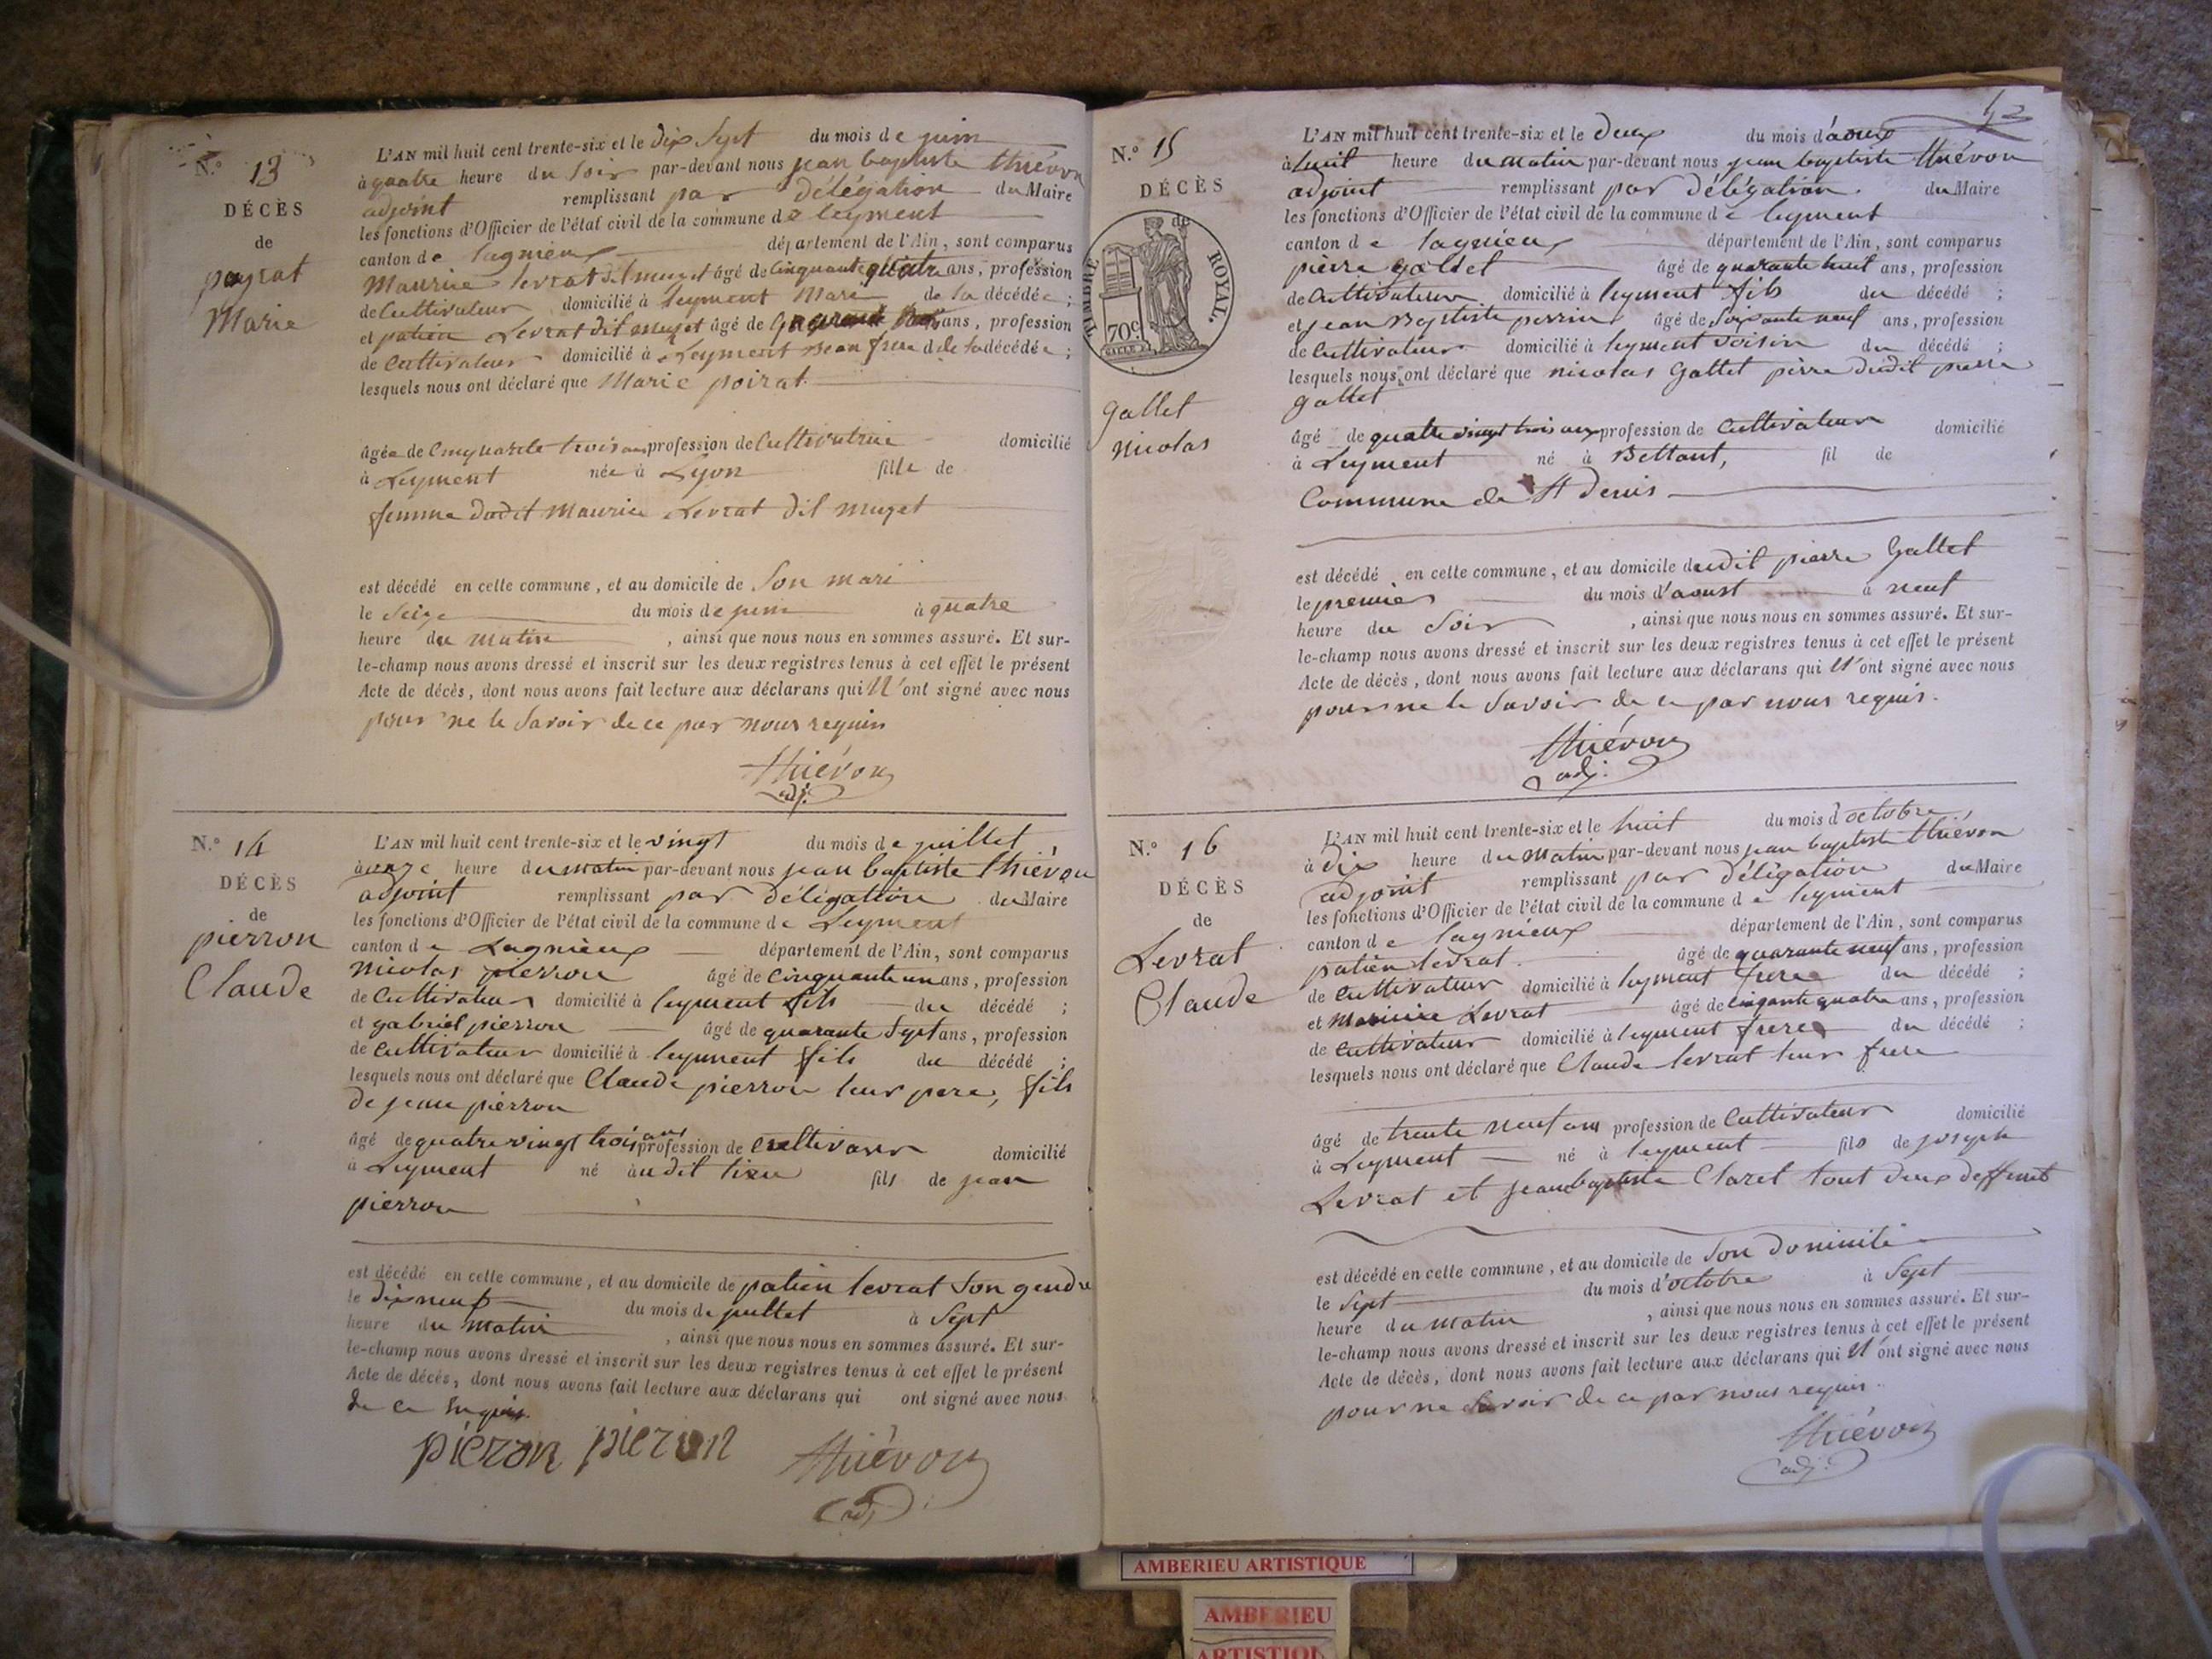 N.° 13
DÉCÈS
de
poyrat
Marie
L'AN mil huit cent trente-six et le dix Sept du mois de juin
à quatre heure du Soir par-devant nous jean baptiste thiévon
adjoint remplissant par délégation du Maire
les fonctions d'Officier de l'état civil de la commune de leyment
canton de lagnieux département de l'Ain, sont comparus
Maurice levrat dit muget âgé de Cinquante quatre ans, profession
de Cultivateur domicilié à leyment Mari de la décédée ;
et patien Levrat dit muget âgé de ans, profession
de Cultivateur domicilié à Leyment Beau frere de la décédée ;
lesquels nous ont déclaré que Marie poirat
âgée de Cinquante trois ans profession de Cultivatrice domicilié
à Leyment née à Lyon fille de
femme dudit Maurice Levrat dit muget
est décédé en cette commune, et au domicile de Son mari
le Seize du mois de juin à quatre
heure du matin , ainsi que nous nous en sommes assuré. Et sur-
le-champ nous avons dressé et inscrit sur les deux registres tenus à cet effet le présent
Acte de décès, dont nous avons fait lecture aux déclarans qui N'ont signé avec nous
pour ne le Savoir de ce par nous requis
thiévon
adj.
N.° 14
DÉCÈS
de
pierron
Claude
L'AN mil huit cent trente-six et le vingt du mois de juillet
à onze heure du matin par-devant nous jean baptiste thiévon
adjoint remplissant par délégation du Maire
les fonctions d'Officier de l'état civil de la commune de Leyment
canton de Lagnieux département de l'Ain, sont comparus
nicolas pierron âgé de Cinquante un ans, profession
de Cultivateur domicilié à leyment fils du décédé ;
et gabriel pierron âgé de quarante Sept ans, profession
de Cultivateur domicilié à leyment fils du décédé ;
lesquels nous ont déclaré que Claude pierron leur pere, fils
de jean pierron
âgé de quatre vingt trois ans profession de Cultivateur domicilié
à Leyment né audit lieu fils de jean
pierron
est décédé en cette commune, et au domicile de patien levrat Son gendre
le dix neuf du mois de juillet à Sept
heure du matin , ainsi que nous nous en sommes assuré. Et sur-
le-champ nous avons dressé et inscrit sur les deux registres tenus à cet effet le présent
Acte de décès, dont nous avons fait lecture aux déclarans qui ont signé avec nous
de ce requis
pieron pieron thiévon
adj
42
N.° 15
DÉCÈS
de
TIMBRE ROYAL.
70c
Gallet
nicolas
L'AN mil huit cent trente-six et le deux du mois d'aoust
à huit heure du matin par-devant nous jean baptiste thiévon
adjoint remplissant par délégation du Maire
les fonctions d'Officier de l'état civil de la commune de leyment
canton de lagnieux département de l'Ain, sont comparus
pierre gallet âgé de quarante huit ans, profession
de Cultivateur domicilié à leyment fils du décédé ;
et jean Baptiste perrin âgé de Soixante neuf ans, profession
de Cultivateur domicilié à leyment voisin du décédé ;
lesquels nous ont déclaré que nicolas Gallet père dudit pierre
gallet
âgé de quatre vingt trois ans profession de Cultivateur domicilié
à Leyment né à Bettant, fil de
Commune de St Denis
est décédé en cette commune, et au domicile dudit pierre Gallet
le premier du mois d'aoust à neuf
heure du Soir , ainsi que nous nous en sommes assuré. Et sur-
le-champ nous avons dressé et inscrit sur les deux registres tenus à cet effet le présent
Acte de décès, dont nous avons fait lecture aux déclarans qui N'ont signé avec nous
pour ne le Savoir de ce par nous requis.
thiévon
adj.
N.° 16
DÉCÈS
de
Levrat
Claude
L'AN mil huit cent trente-six et le huit du mois d'octobre,
à dix heure du matin par-devant nous jean baptiste thiévon
adjoint remplissant par délégation du Maire
les fonctions d'Officier de l'état civil de la commune de leyment
canton de lagnieux département de l'Ain, sont comparus
patien levrat âgé de quarante neuf ans, profession
de Cultivateur domicilié à leyment frere du décédé ;
et Maurice Levrat âgé de Cinqante quatre ans, profession
de Cultivateur domicilié à leyment frere du décédé ;
lesquels nous ont déclaré que Claude levrat leur frere
âgé de trente neuf ans profession de Cultivateur domicilié
à Leyment né à leyment fils de joseph
Levrat et jean baptiste Claret tout deux deffunt
est décédé en cette commune, et au domicile de Son Domicile
le Sept du mois d'octobre à Sept
heure du matin , ainsi que nous nous en sommes assuré. Et sur-
le-champ nous avons dressé et inscrit sur les deux registres tenus à cet effet le présent
Acte de décès, dont nous avons fait lecture aux déclarans qui N'ont signé avec nous
pour ne Savoir de ce par nous requis.
thiévon
adj.
AMBERIEU ARTISTIQUE
AMBERIEU
ARTISTIQ